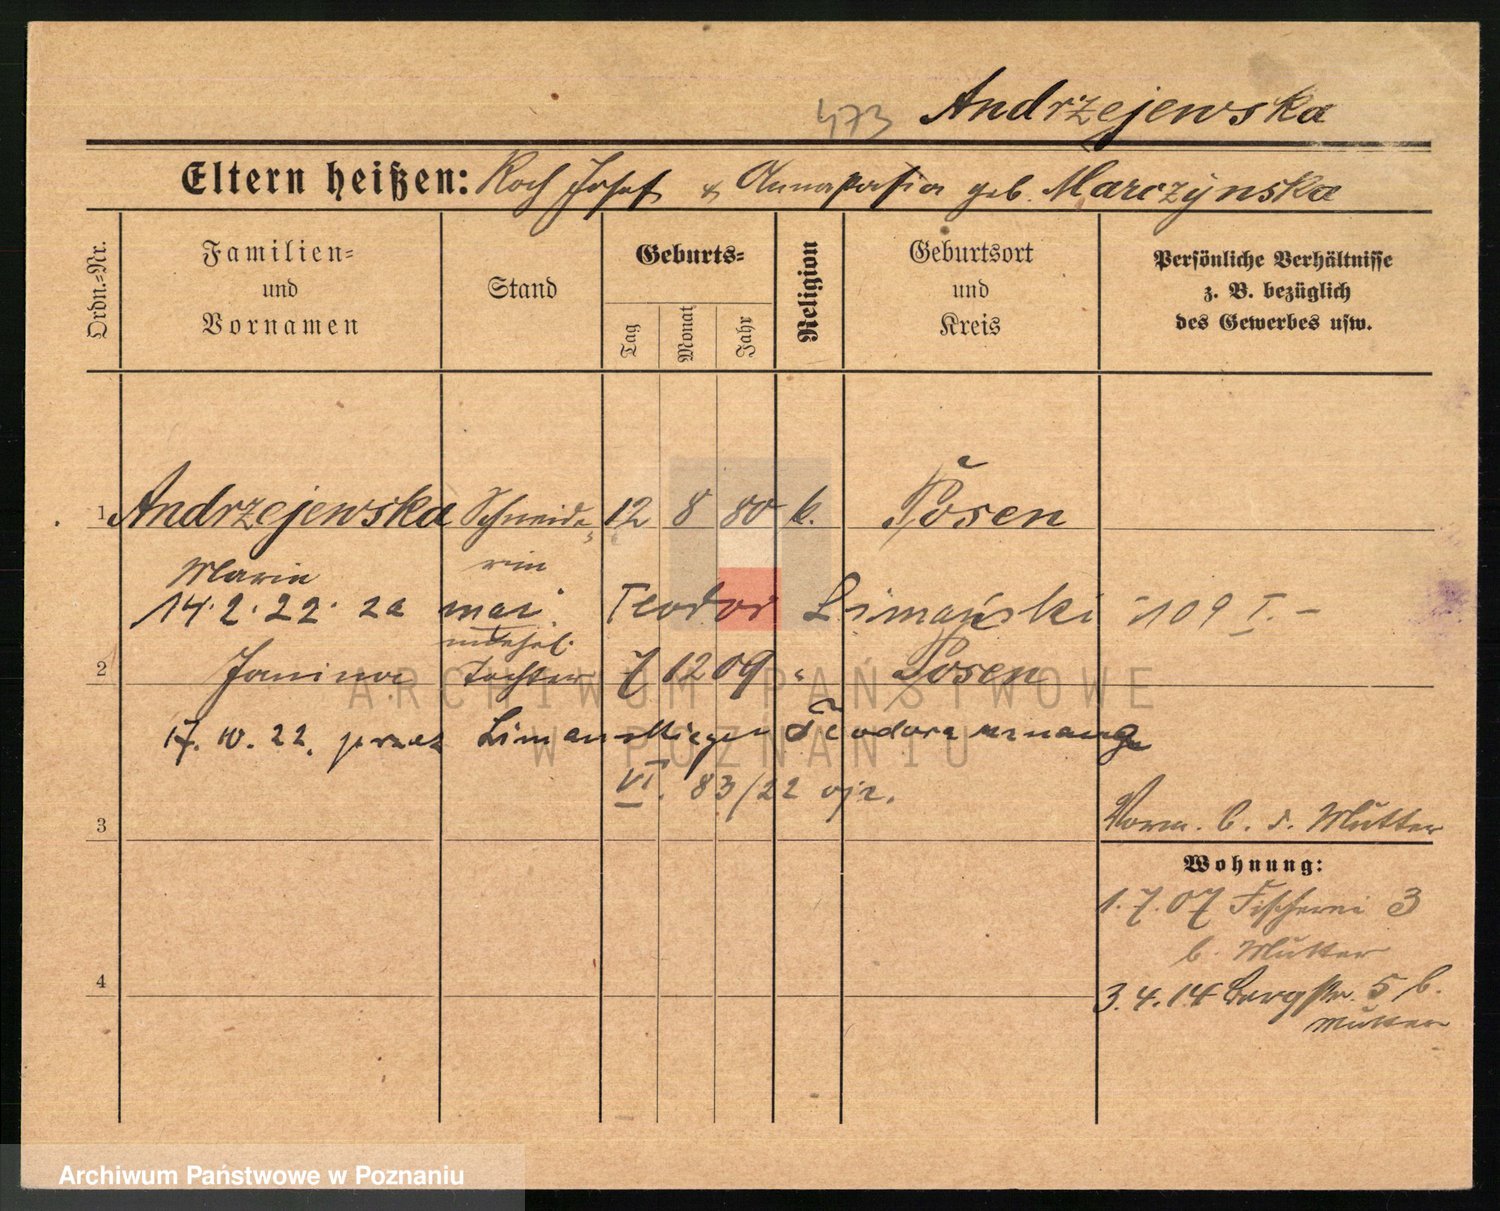 473 Andrzejewska
Eltern heißen: Roch Josef & Annastasia geb. Marczynska
Ordn.-Nr.
Familien-
und
Vornamen
Stand
Geburts-
Tag
Monat
Jahr
Religion
Geburtsort
und
Kreis
Persönliche Verhältnisse
z. B. bezüglich
des Gewerbes usw.
1 Andrzejewska Schneide- 12 8 80 k. Posen
Maria rin
14.2.22. za mąż Teodor Limański 109 I. -
unehel.
2 Janina Tochter 7 12 09 " Posen
ARCHIWUM PAŃSTWOWE
17. 10. 22. przez Limanskiego Teodora uznana
W POZNANIU
VI. 83/22 ojz.
3
Vorm. b. d. Mutter
Wohnung:
1.7.07 Fischerei 3
b. Mutter
4
3.4.14 Bergstr. 5 b.
Mutter
Archiwum Państwowe w Poznaniu